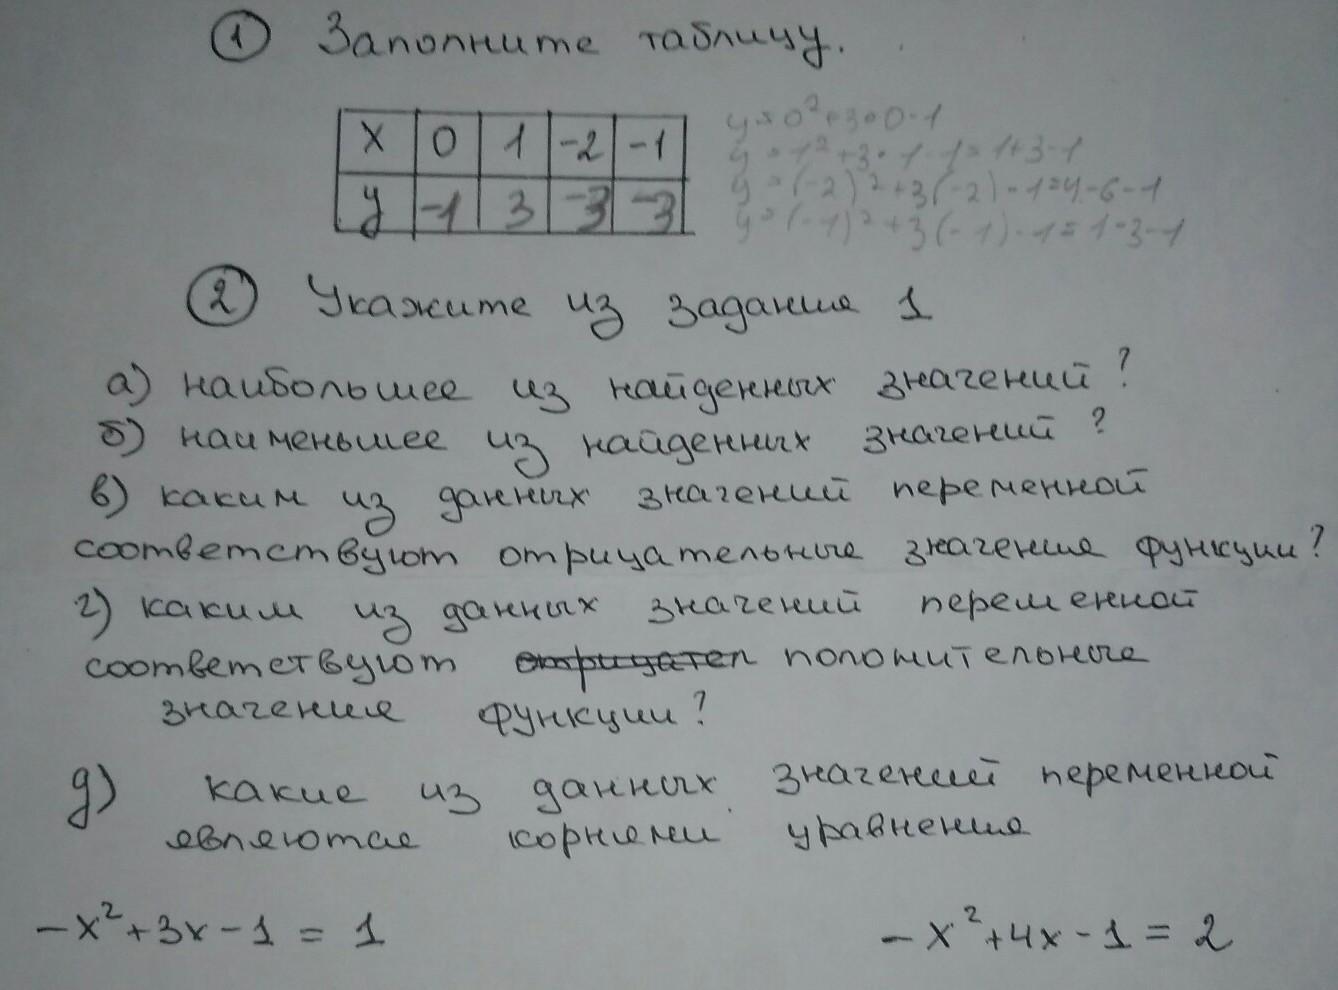 ① Заполните таблицу.
x 0 1 -2 -1
y -1 3 -3 -3
y = 0² + 3 • 0 - 1
y = 1² + 3 • 1 - 1 = 1 + 3 - 1
y = (-2)² + 3(-2) - 1 = 4 - 6 - 1
y = (-1)² + 3(-1) - 1 = 1 - 3 - 1
② Укажите из задание 1
а) наибольшее из найденных значений?
б) наименьшее из найденных значений?
в) каким из данных значений переменной
соответствуют отрицательные значение функции?
г) каким из данных значений переменной
соответствуют отрицател положительные
значение функции?
д) какие из данных значений переменной
являются корнями уравнение
-x² + 3x - 1 = 1
-x² + 4x - 1 = 2